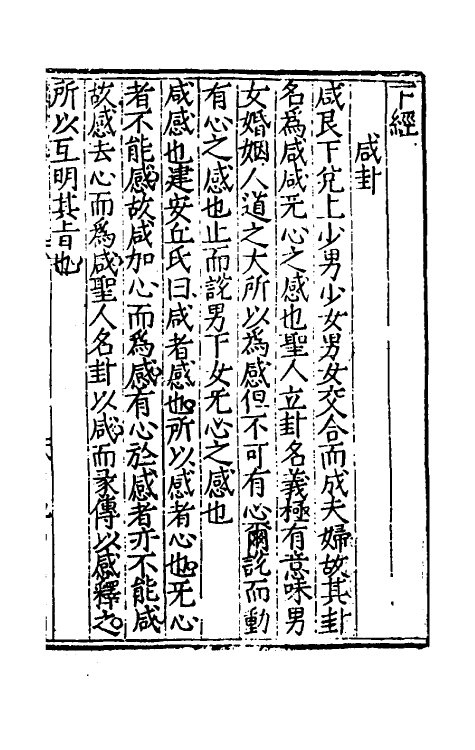 下經
咸卦
咸艮下兌上少男少女男女交合而成夫婦故其卦
名為咸咸旡心之感也聖人立卦名義極有意味男
女婚姻人道之大所以為感但不可有心爾說而動
有心之感也止而說男下女旡心之感也
咸感也建安丘氏曰咸者感也所以感者心也旡心
者不能感故咸加心而為感有心於感者亦不能咸
故感去心而爲咸聖人名卦以咸而彖傳以感釋之
所以互明其旨也